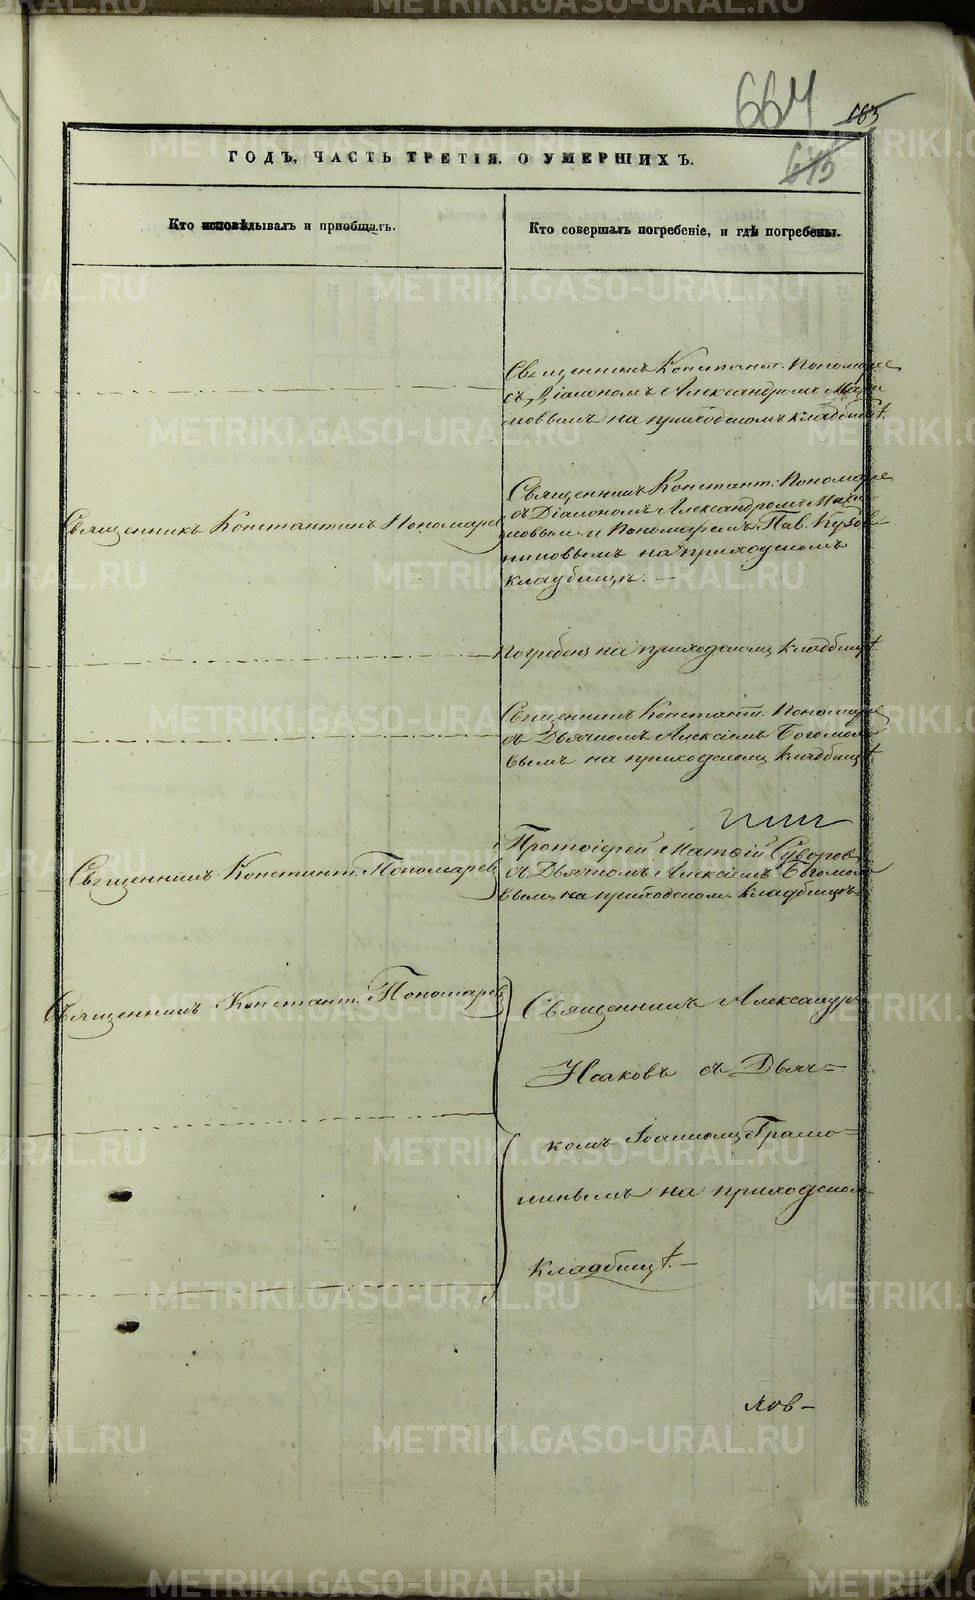 664
183
673
ГОДЪ, ЧАСТЬ ТРЕТІЯ. О УМЕРШИХЪ.
Кто исповѣдывалъ и пріобщалъ.
Кто совершалъ погребеніе, и гдѣ погребены.
Священникъ Констант. Пономарев
съ Діакономъ Александромъ Макси
мовымъ на приходскомъ кладбищѣ.
Священникъ Константинъ Пономарев
Священникъ Констант. Пономарев
съ Діакономъ Александромъ Макси
мовымъ и Пономаремъ Пав.
на приходскомъ
кладбищѣ. —
Погребенъ на приходскомъ кладбищѣ
Священникъ Констант. Пономарев
съ Дьячкомъ Алексіемъ Богомоло
вымъ на приходскомъ кладбищѣ.
Священникъ Констант. Пономарев
Протоіерей Матѳій Суворов
съ Дьячкомъ Алексіемъ Богомоло
вымъ на приходском кладбищѣ
Священникъ Констант. Пономарев
Священникъ Александръ
Исаковъ съ Дьяч=
комъ Іоанномъ Грамо=
линымъ на приходском
кладбищѣ. —
METRIKI.GASO-URAL.RU